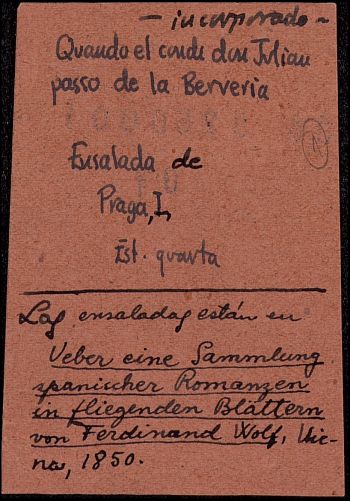 - incorporado -
Quando el conde don Julian
passo de la Berveria
Ensalada de
Praga, I,
Est. quarta
Las ensaladas están en
Ueber eine Sammlung
spanischer Romanzen
in fliegenden Blättern
von Ferdinand Wolf, Vie-
na, 1850.